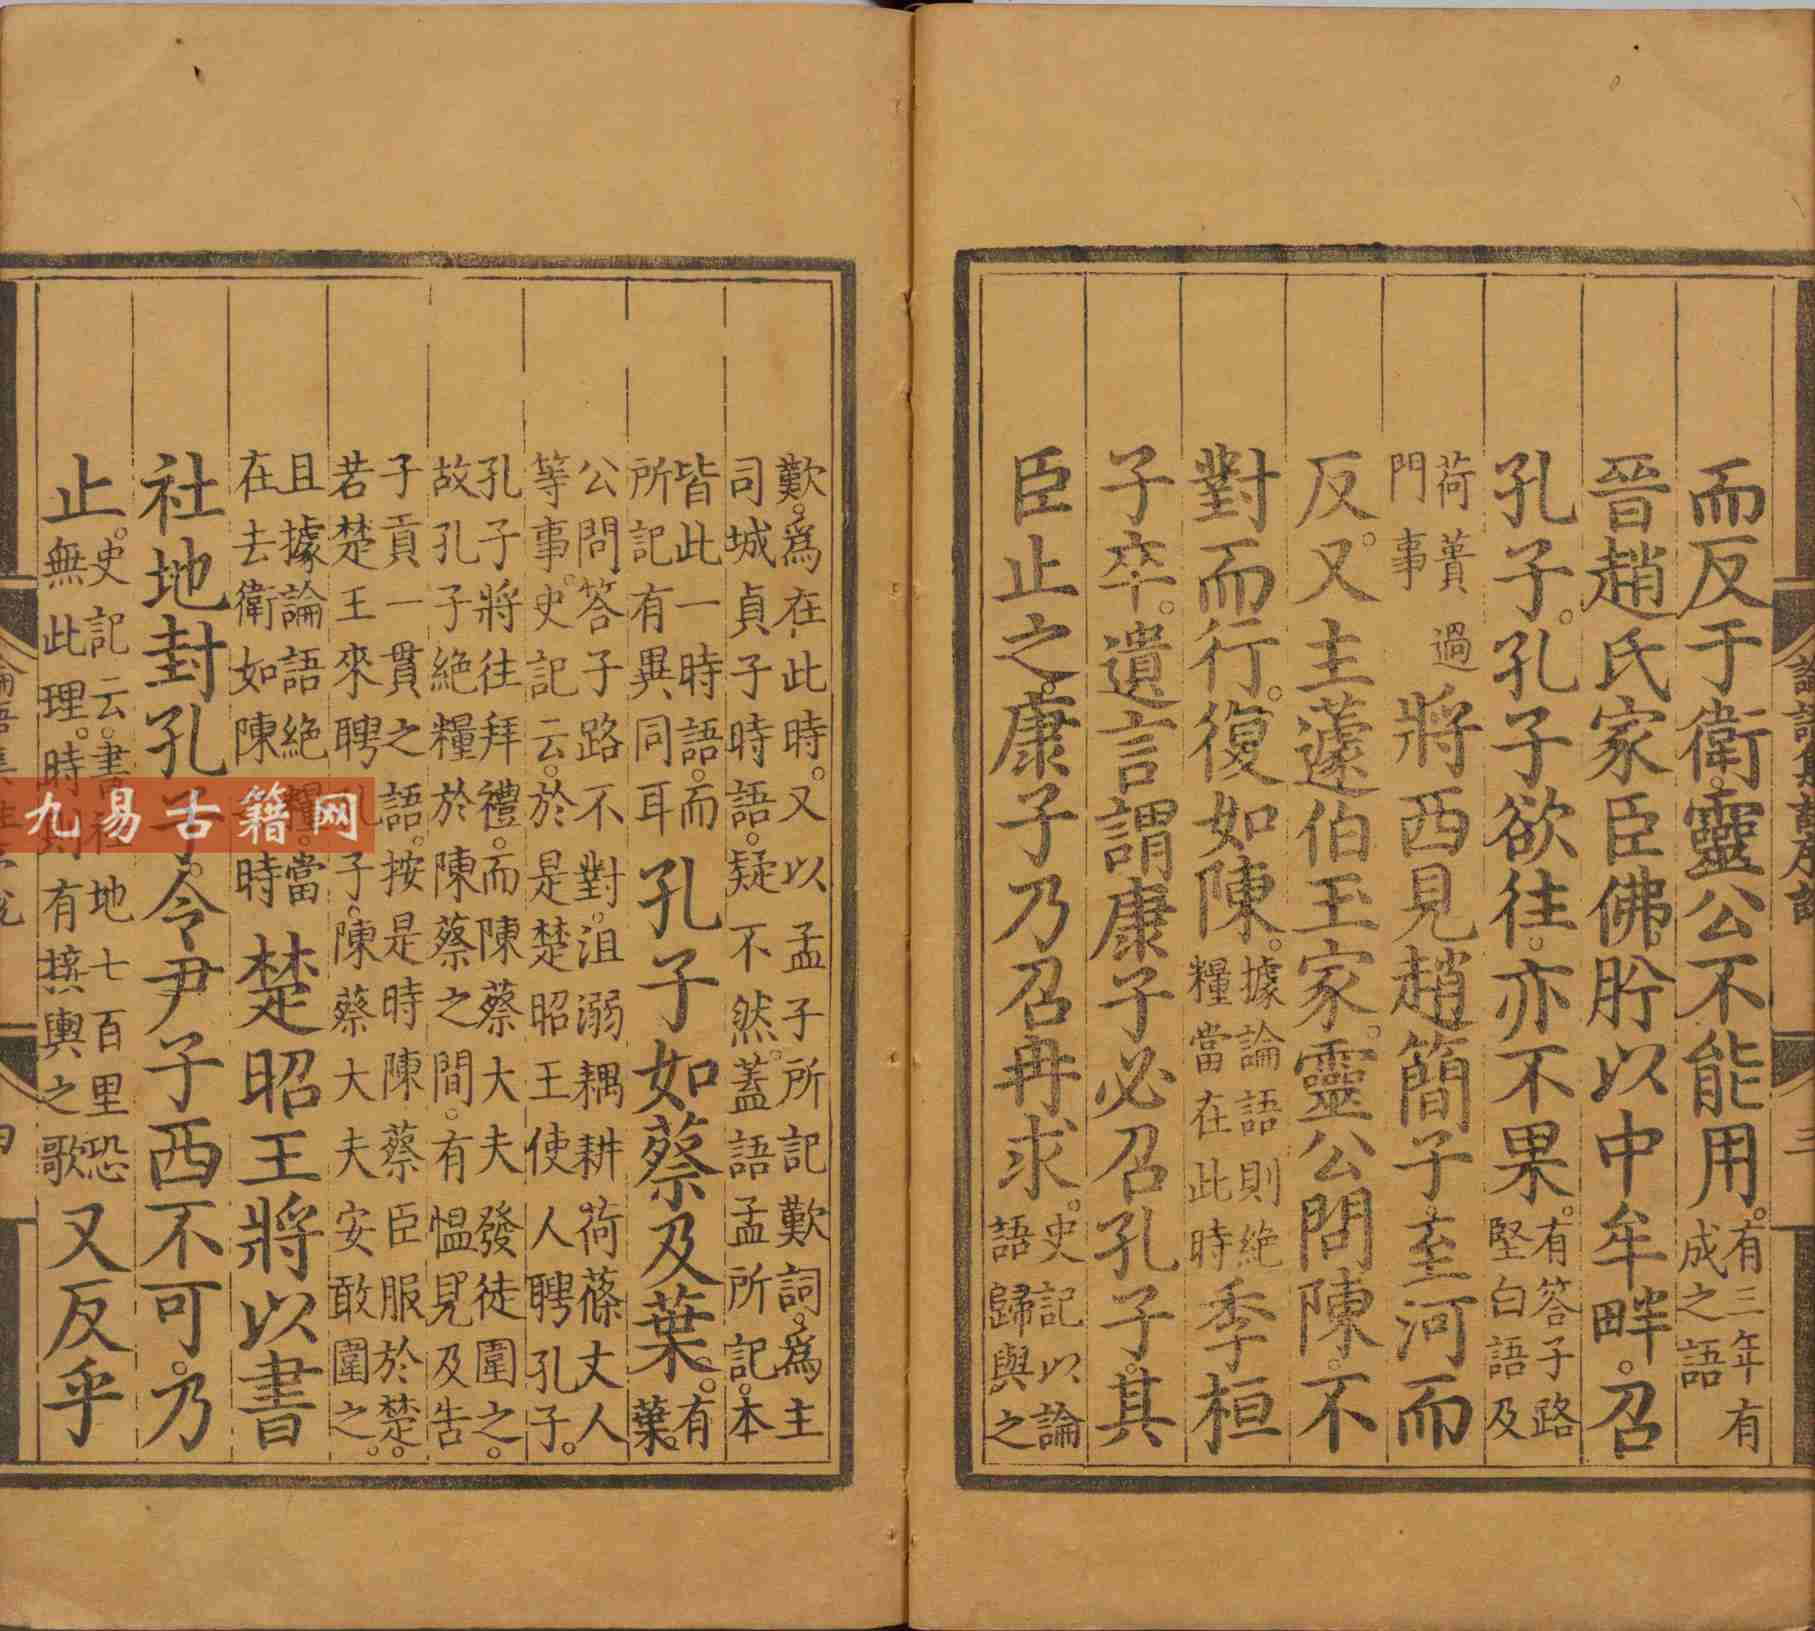 而反于衛。靈公不能用。有三年有成之語
晉趙氏家臣佛肸以中牟畔。召
孔子。孔子欲往。亦不果。有答子路堅白語及
荷蕢過門事將西見趙簡子。至河而
反。又主蘧伯玉家。靈公問陳。不
對而行。復如陳。據論語則絕糧當在此時季桓
子卒。遺言謂康子必召孔子。其
臣止之。康子乃召冉求。史記以論語歸與之
歎。爲在此時。又以孟子所記歎詞。爲主司城貞子時語。疑不然。蓋語孟所記。本
皆此一時語。而所記有異同耳孔子如蔡及葉。有葉。
公問答子路不對。沮溺耦耕。荷蓧丈人等事。史記云。於是楚昭王使人聘孔子。
孔子將往拜禮。而陳蔡大夫發徒圍之。故孔子絕糧於陳蔡之間。有慍見及告
子貢一貫之語。按是時陳蔡臣服於楚。若楚王來聘孔子。陳蔡大夫安敢圍之。
且據論語絕糧。當在去衛如陳時楚昭王將以書
社地封孔子。令尹子西不可。乃
止。史記云。書社地七百里恐無此理。時則有接輿之歌又反乎
論語集註序說
三
九易古籍网